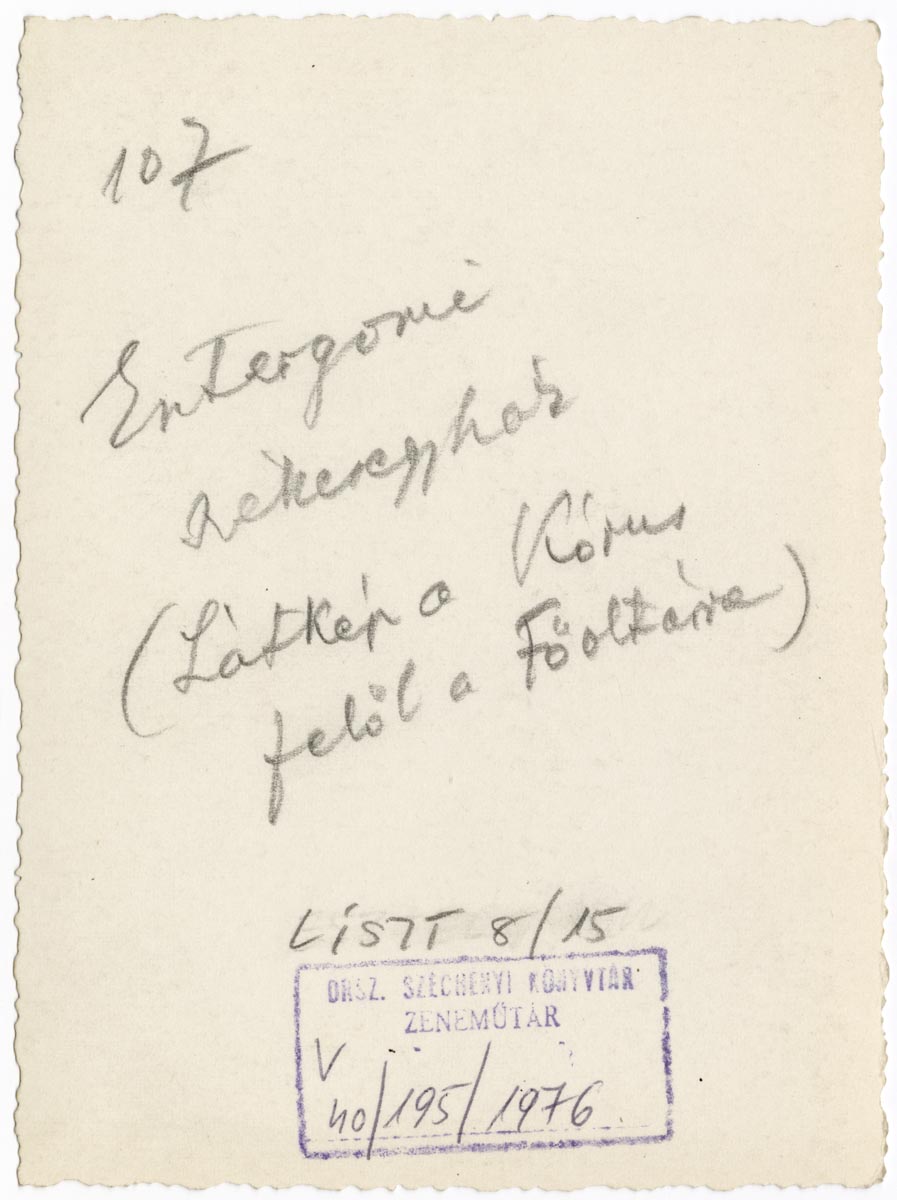 107
Esztergomi
székesegyház
(Látkép a Kórus
felől a Főoltárra)
LISZT 8/15
ORSZ. SZÉCHÉNYI KÖNYVTÁR
ZENEMŰTÁR
V
40/195/1976